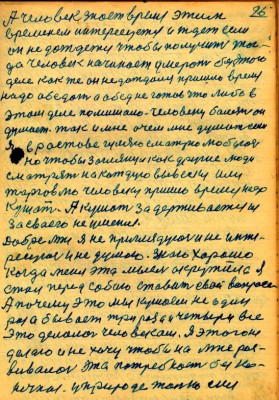 А человек знает время этим 26
временем интересуется и ждет если
он не дождется чтобы получить тог-
да человек начинает умерать будто в
деле как же он не дождал пришло время
надо обедать а обед не готов что либо в
этом деле помешало человеку болит он
думает так и мне о чем мне думать если
Я в растове гуляю сматрю любуюсь
но чтобы заглянул как другие люди
сматрят на каждую вывеску или
торговлю человеку пришло время нех
кушат. А кушат задерживается из
за своего не умения.
Добре мы я не примеидуюся и не инте-
ресуюся и не думаю. Знаю хорошо
Когда меня эта мысля окружила Я
стал перед собою ставит свой вопрос
А почему это мы кушаем не один
раз а бывает три раза и четыри все
Это делается человеком. Я этого не
делаю и не хочу чтобы на мне раз-
вивалося Эта потребност бу ко-
нечная. и природе только сил